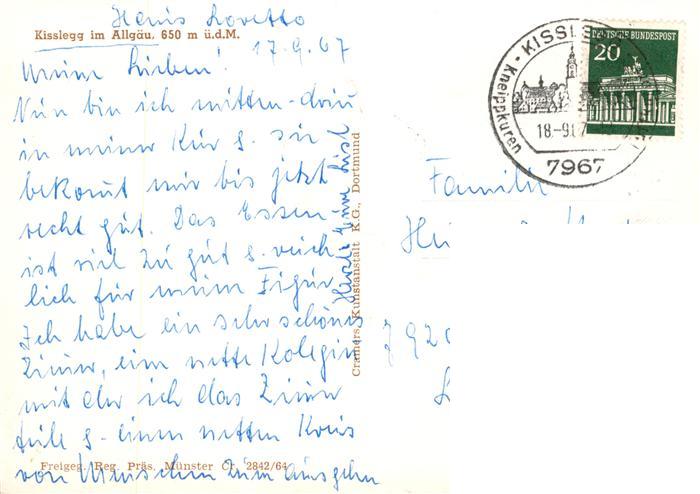 Haus Loretto
Kisslegg im Allgäu. 650 m ü.d.M.
17.9.67
Meine Lieben!
Nun bin ich mitten-drin
in meiner Kur u. sie
bekomt mir bis jetzt
recht gut. Das Essen
ist viel zu gut u. reich-
lich für meine Figur
Ich habe ein sehr schönes
Zimmer, eine nette Kolegin
mit der ich das Zimmer
teile u. einen netten Kreis
von Menschen zum ausgehn
Herzl. Eure
Freigeg. Reg. Präs. Münster Cr. 2842/64
Cramers Kunstanstalt K.G., Dortmund
DEUTSCHE BUNDESPOST
20
KISSL
Kneippkuren
18-9
7967
Familie
Hei
792